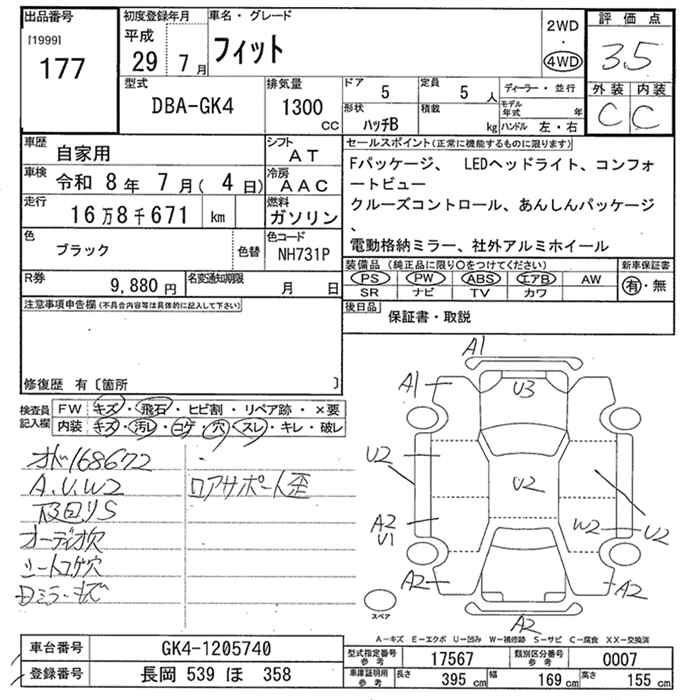 出品番号
[1999]
177
初度登録年月
平成
29 7月
車名・グレード
フィット
2WD
・
4WD
評価点
3.5
外装 内装
C C
型式
DBA-GK4
排気量
1300
CC
ドア 5
定員 5 人
形状 ハッチB
積載 kg
ディーラー・並行
モデル年式 年
ハンドル 左・右
車歴
自家用
シフト
AT
車検
令和 8年 7月( 4日)
冷房
AAC
走行
16万8千671 km
燃料
ガソリン
色
ブラック
色替
色コード
NH731P
R券
9,880円
名変通知期限
月 日
セールスポイント(正常に機能するものに限ります)
Fパッケージ、 LEDヘッドライト、コンフォ
ートビュー
クルーズコントロール、あんしんパッケージ
、
電動格納ミラー、社外アルミホイール
装備品 (純正品に限り○をつけてください)
新車保証書
PS PW ABS エアB AW
有・無
SR ナビ TV カワ
後日品
保証書・取説
注意事項申告欄(不具合内容等は具体的に記入して下さい)
修復歴 有〔箇所 〕
検査員
記入欄
FW キズ・飛石・ヒビ割・リペア跡・×要
内装 キズ・汚レ・コゲ・穴・スレ・キレ・破レ
オド168672
A.U.W2
下回りS
オーディオ欠
シートコゲ穴
ロアサポート歪
A1
A1
U3
U2
U2
A2
U1
W2
U2
A2
A2
A2
スペア
A-キズ E-エクボ U-凹み W-補修跡 S-サビ C-腐食 XX-交換済
車台番号
GK4-1205740
登録番号
長岡 539 ほ 358
型式指定番号
参考
17567
類別区分番号
参考
0007
車庫証明用
参考
長さ 395 cm
幅 169 cm
高さ 155 cm